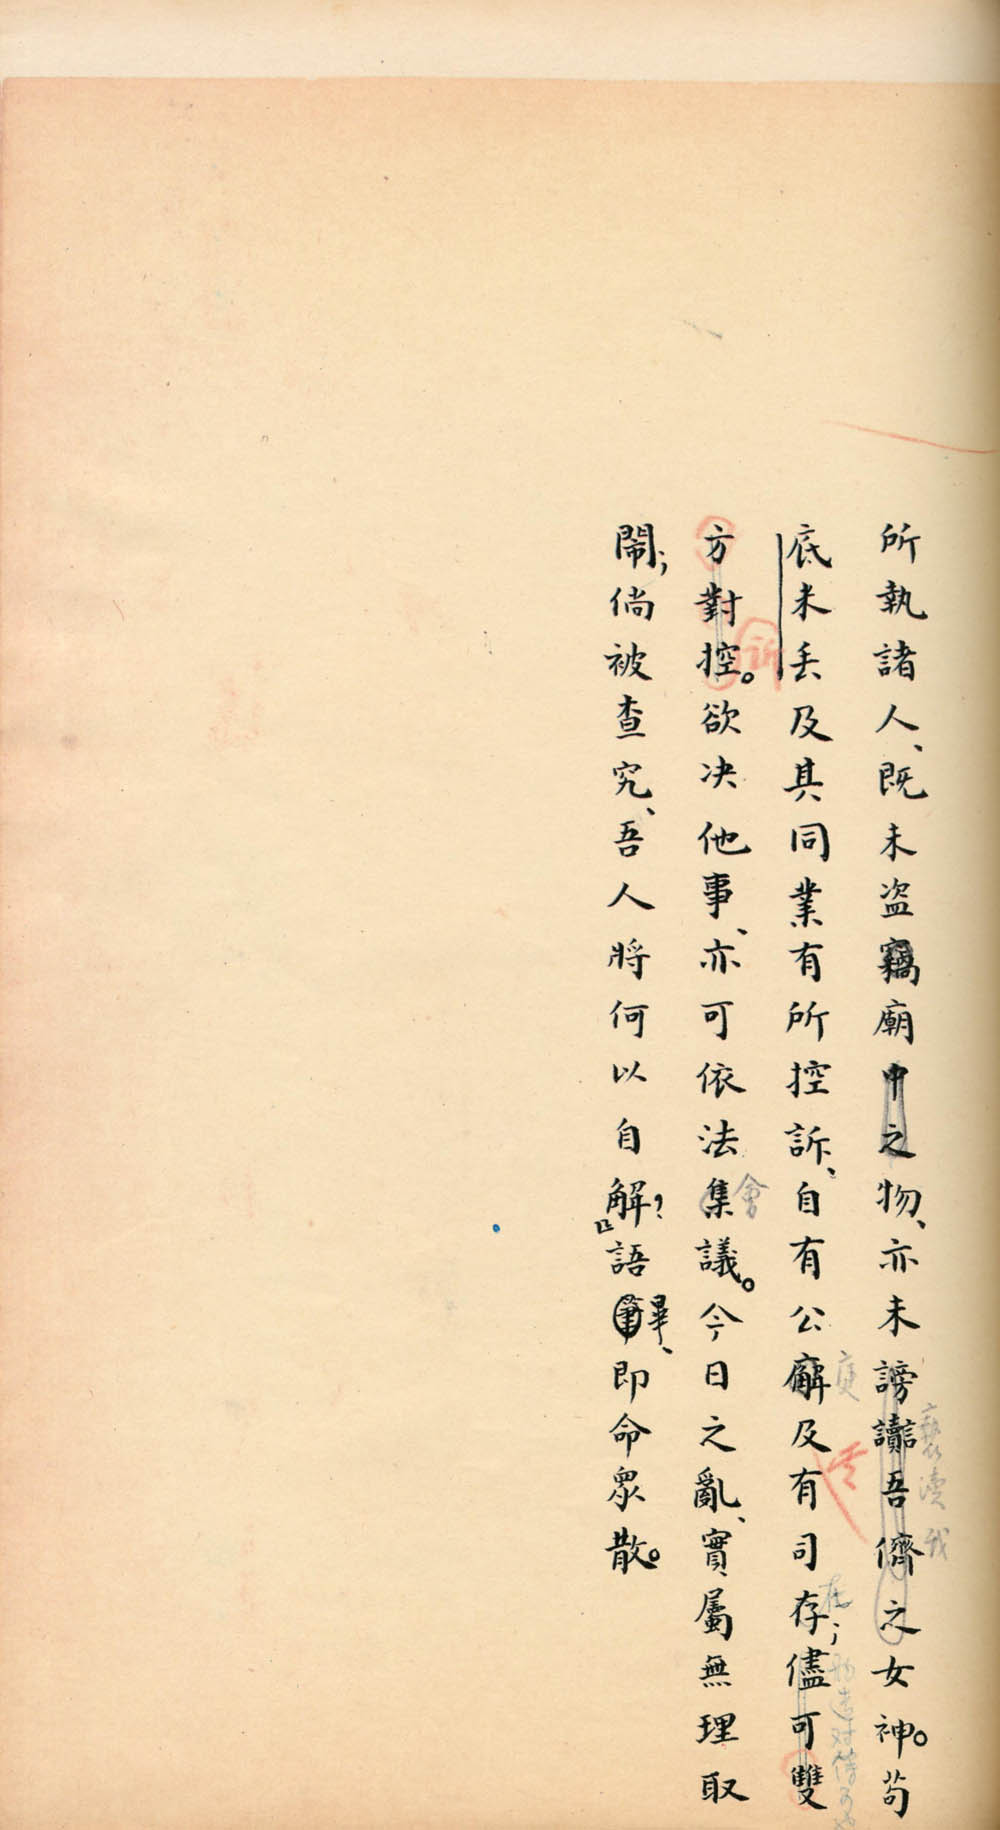 所執諸人、既未盜竊廟中之物、亦未謗讟吾儕之女神。苟
褻瀆我
底米丢及其同業有所控訴、自有公廨及有司存;儘可雙
庭
在
方對控。欲決他事、亦可依法集議。今日之亂、實屬無理取
訴
會
鬧;倘被查究、吾人將何以自解?」語畢、即命眾散。